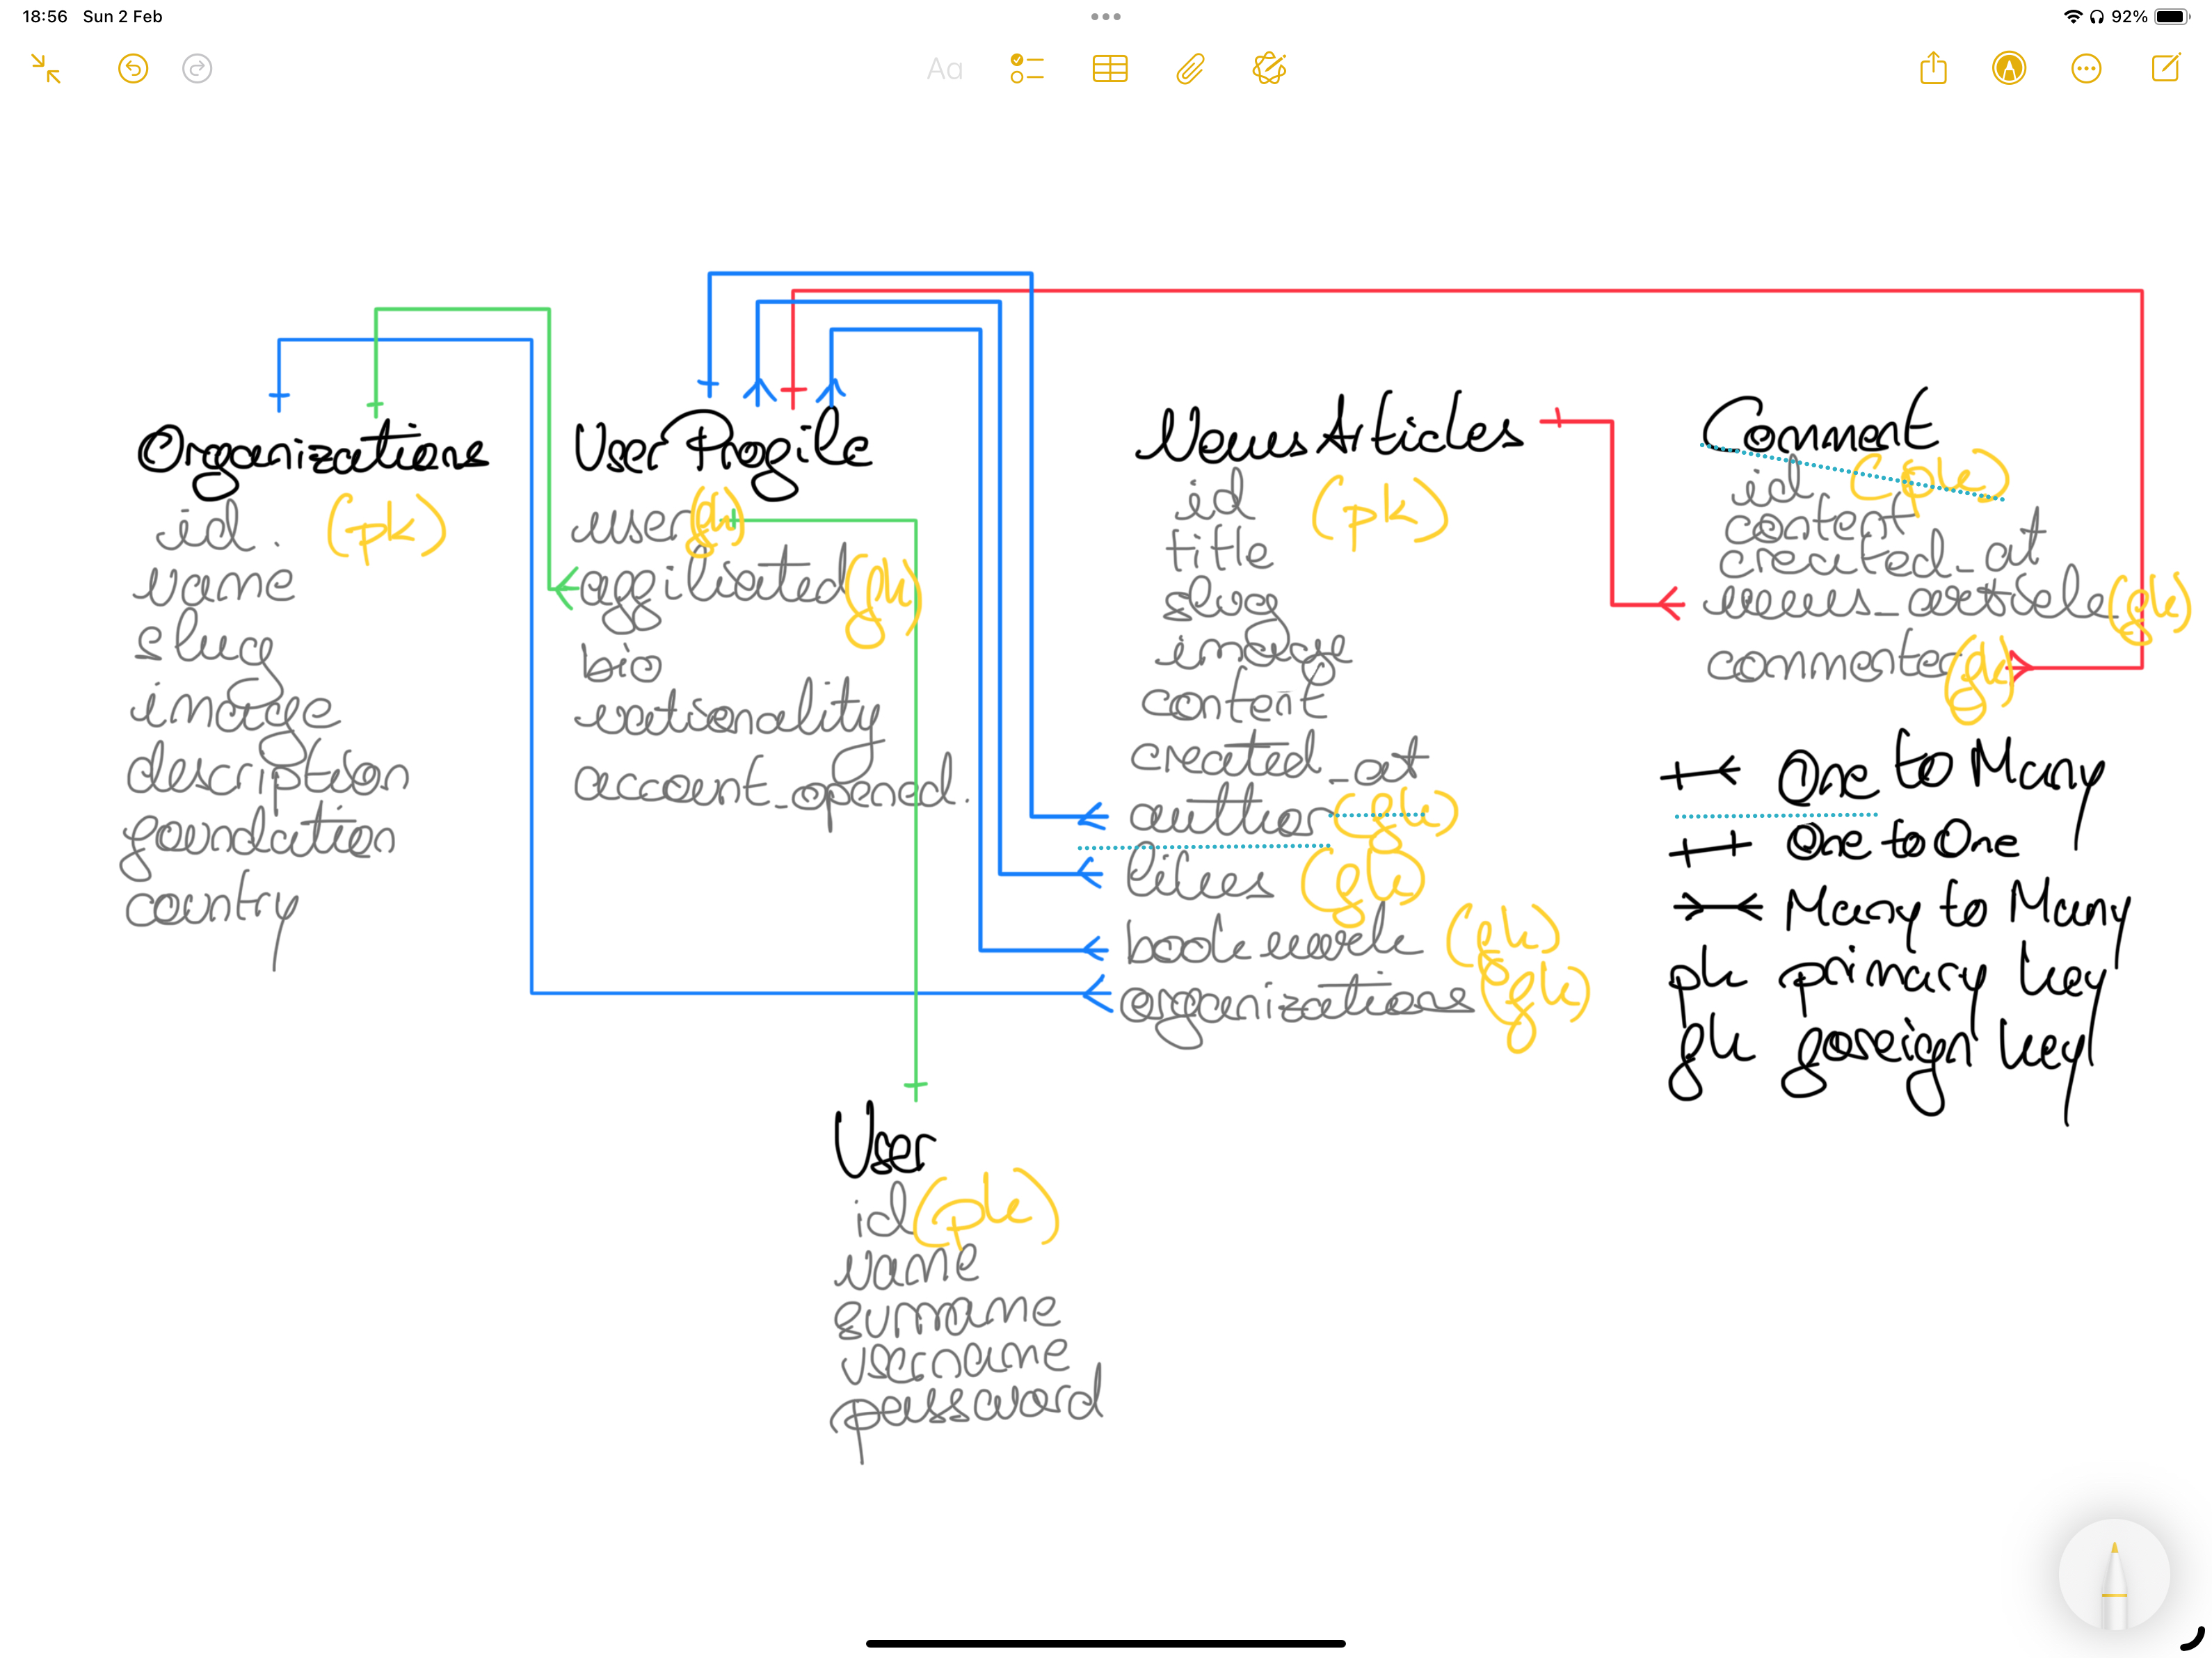 18:56 Sun 2 Feb
92%
Aa
Organizations
id. (pk)
name
slug
image
description
foundation
country
User Profile
user (fk)
affiliated (fk)
bio
nationality
account_opened.
News Articles
id (pk)
title
slug
image
content
created_at
author (fk)
likes (fk)
bookmark (fk)
organizations (fk)
Comment
id (pk)
content
created_at
news_article (fk)
commenter (fk)
One to Many
One to One
Many to Many
pk primary key
fk foreign key
User
id (pk)
name
surname
username
password